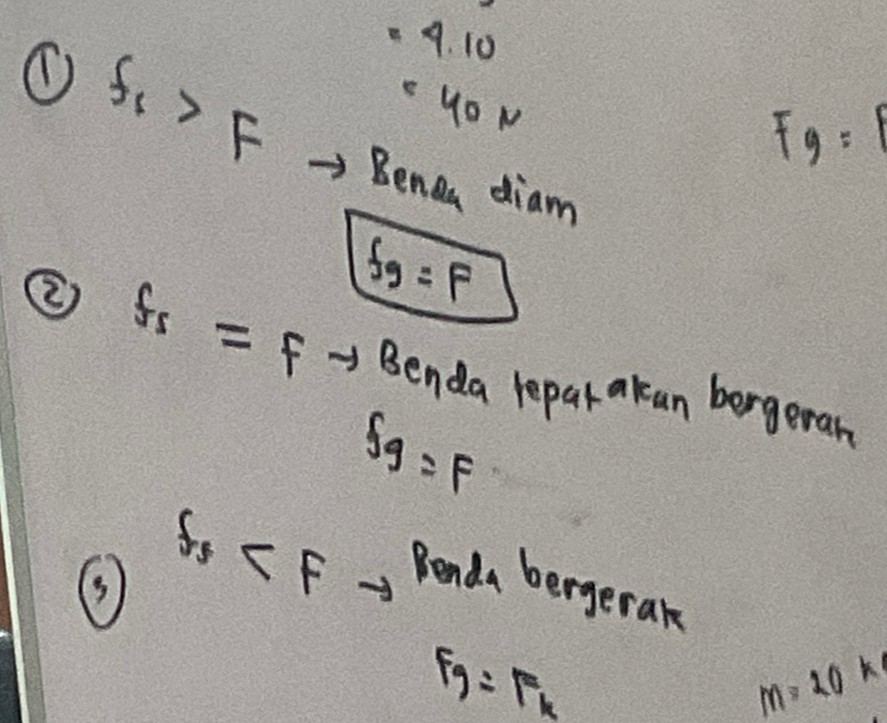 = 4.10
= 40 N
① fs > F → Benda diam
Fg = F
fg = F
② fs = F → Benda tepat akan bergerak
fg = F
③ fs < F → Benda bergerak
Fg = Fk
m = 20